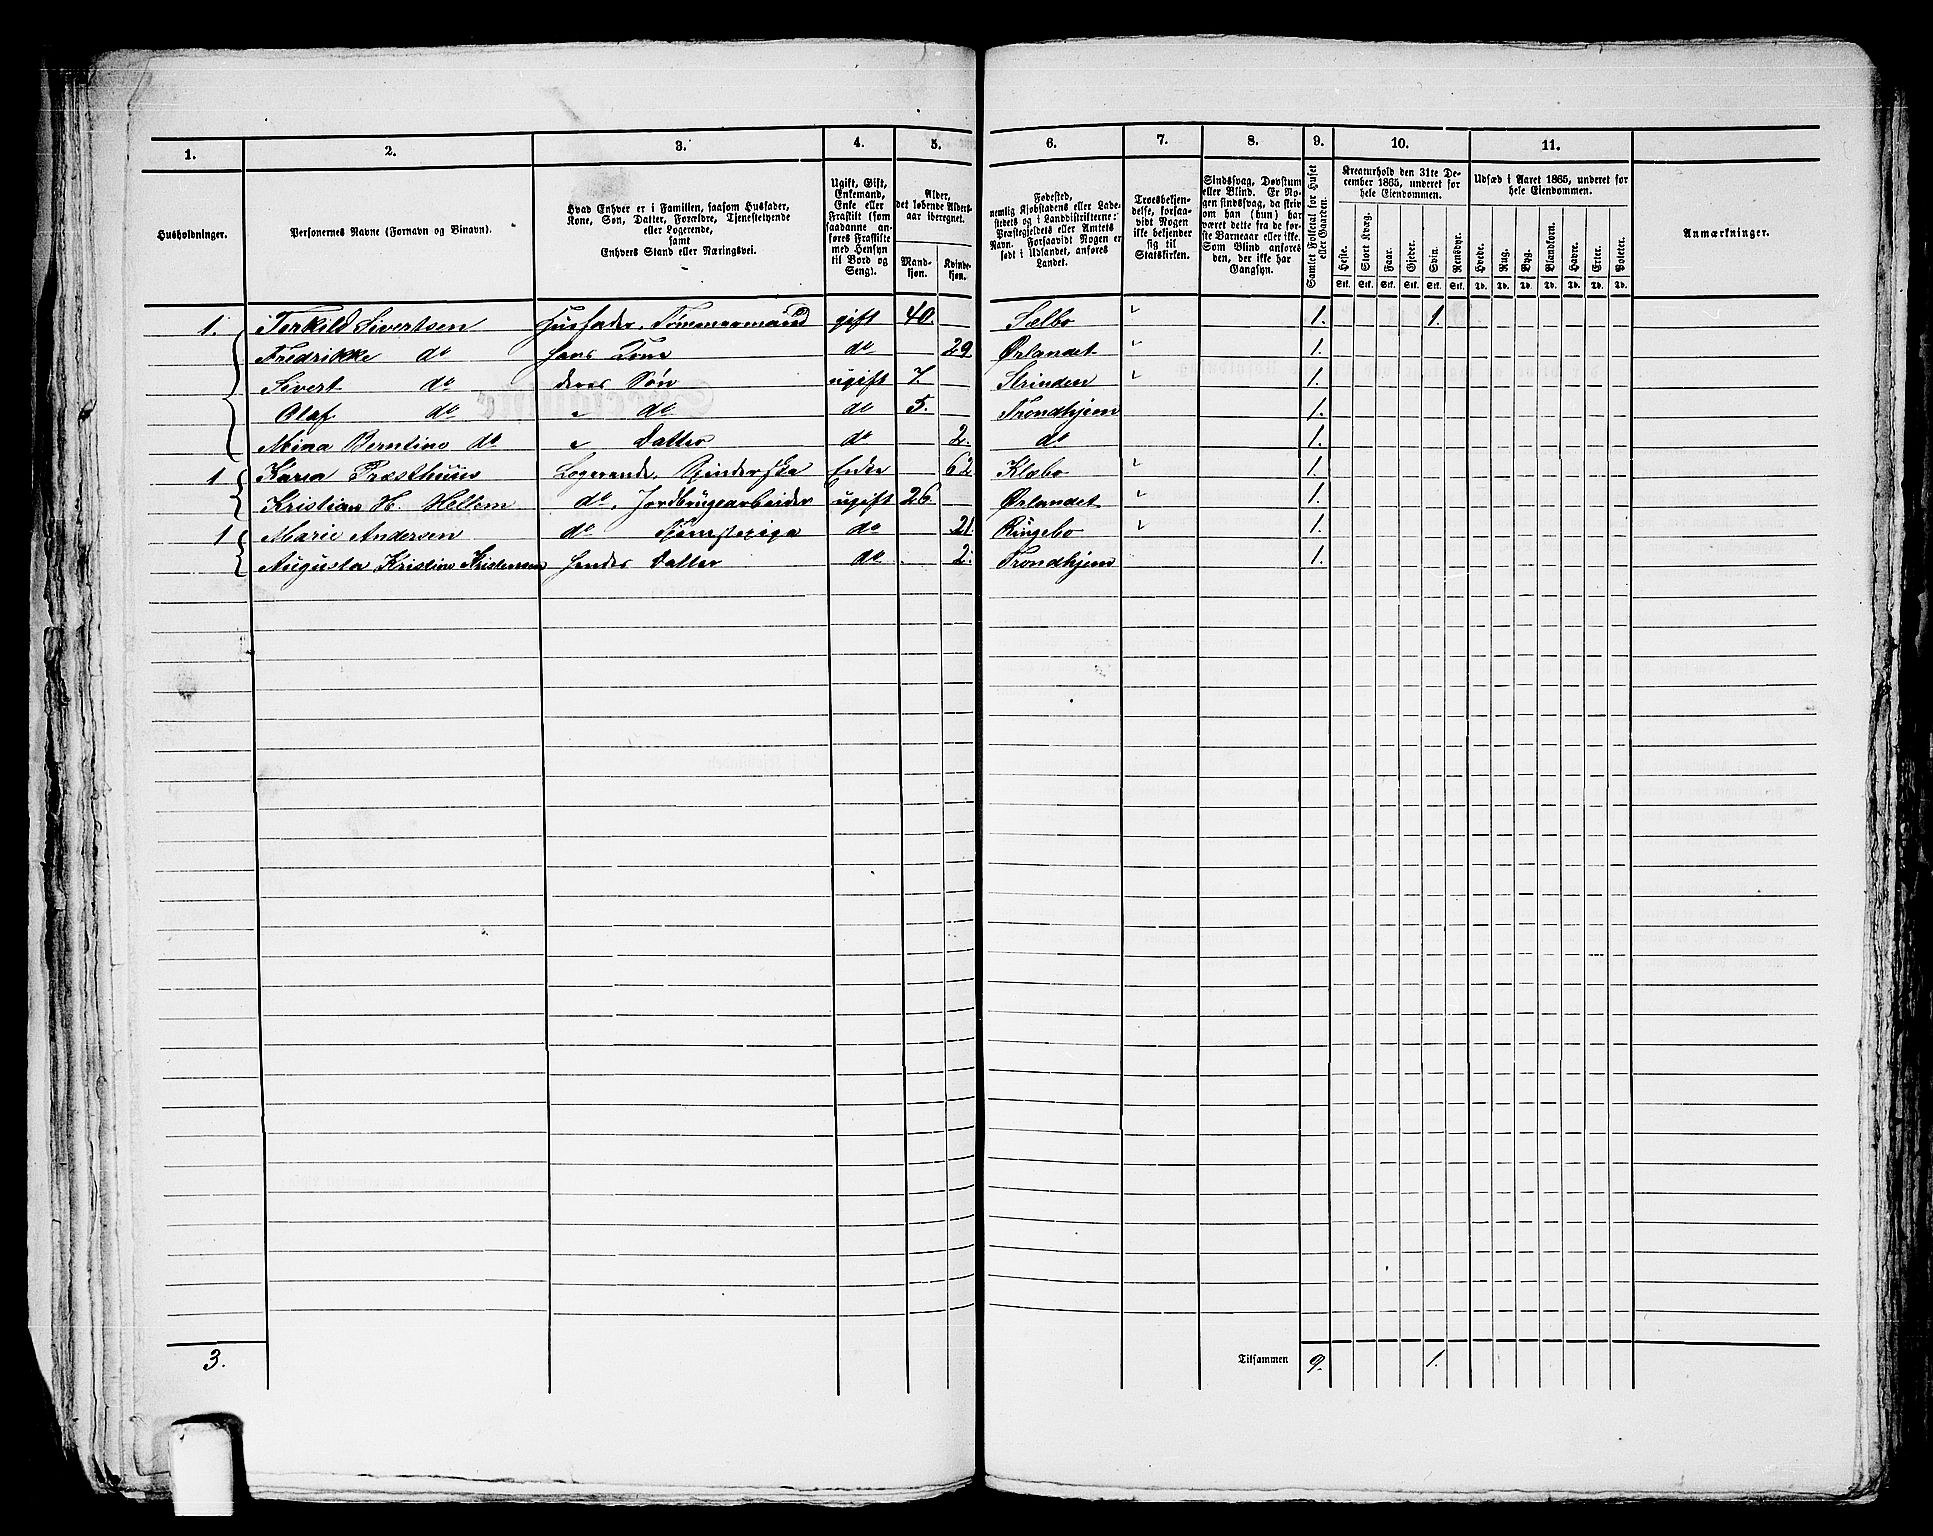 1. 2. 3. 4. 5. 6. 7. 8. 9. 10. 11.
Husholdninger.
Personernes Navne (Fornavn og Binavn).
Hvad Enhver er i Familien, saasom Husfader,
Kone, Søn, Datter, Forældre, Tjenestetyende
eller Logerende,
samt
Enhvers Stand eller Næringsvei.
Ugift, Gift,
Enkemand,
Enke eller
Fraskilt (som
saadanne an-
føres Fraskilte
med Hensyn
til Bord og
Seng).
Alder,
det løbende Alders-
aar iberegnet.
Mand-
kjøn.
Kvinde-
kjøn.
Fødested,
nemlig Kjøbstadens eller Lade-
stedets og i Landdistrikterne:
Præstegjeldets eller Amtets
Navn. Forsaavidt Nogen er
født i Udlandet, anføres
Landet.
Troesbekjen-
delse, forsaa-
vidt Nogen
ikke bekjender
sig til
Statskirken.
Sindssvag, Døvstum
eller Blind. Er No-
gen sindssvag, da skriv
om han (hun) har
været dette fra de før-
ste Barneaar eller ikke.
Som Blind anføres
den, der ikke har
Gangsyn.
Samlet Folketal for Huset
eller Gaarden.
Kreaturhold den 31te De-
cember 1865, underet for
hele Eiendommen.
Heste. Stort Kvæg. Faar. Gjeder. Svin. Rensdyr.
Stk. Stk. Stk. Stk. Stk. Stk.
Udsæd i Aaret 1865, underet for
hele Eiendommen.
Hvede. Rug. Byg. Blandkorn. Havre. Erter. Poteter.
Td. Td. Td. Td. Td. Td. Td.
Anmærkninger.
1. Terkild Sivertsen Husfader. Tømmermand gift 40. Sælbo 1. 1.
Fredrikke do hans Kone do 29 Ørlandet 1.
Sivert do deres Søn ugift 7. Strinden 1.
Olaf do " do do 5. Trondhjem 1.
Mina Berntine do " Datter do 2. do 1.
1 Karen Præsthuus Logerende. Spinderske Enke 62 Klæbo 1.
Kristian H. Hellem do. Jordbrugsarbeider ugift 26. Ørlandet 1.
1 Marie Andersen do Tjenstepige do 21. Ringebo 1.
Augusta Kristine Kristensen hendes Datter do 2. Trondhjem 1.
3. Tilsammen 9. 1.